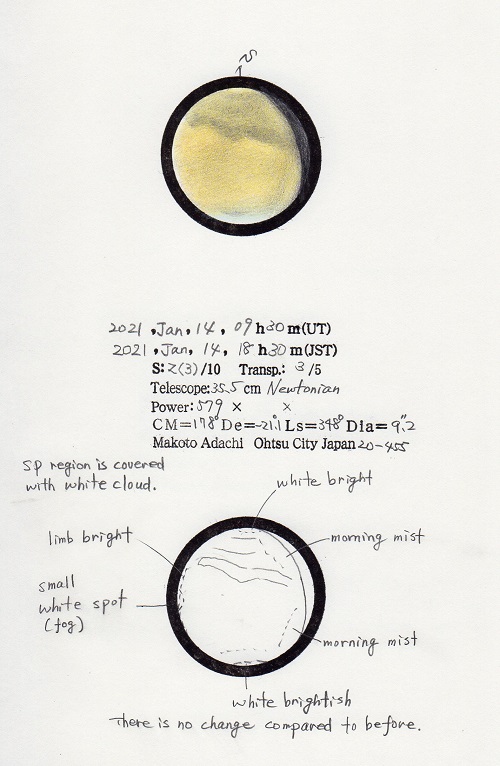 S
2021, Jan, 14, 09h30m(UT)
2021, Jan, 14, 18h30m(JST)
S: 2(3)/10 Transp.: 3/5
Telescope: 35.5cm Newtonian
Power: 579 × ×
CM=178° De=-21.1° Ls=348° Dia=9.″2
Makoto Adachi Ohtsu City Japan 20-455
SP region is covered
with white cloud.
white bright
limb bright
morning mist
small
white spot
(fog)
morning mist
white brightish
There is no change compared to before.